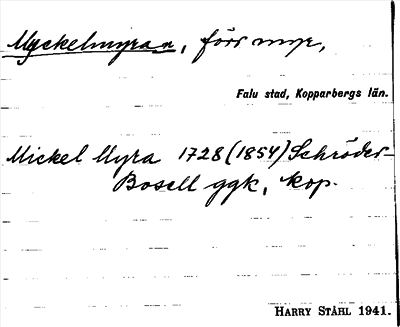 Myckelmyran, förr myr,
Falu stad, Kopparbergs län.
Mickel Myra 1728 (1854) Schröder-
Bosell ggk, kop.
HARRY STÅHL 1941.